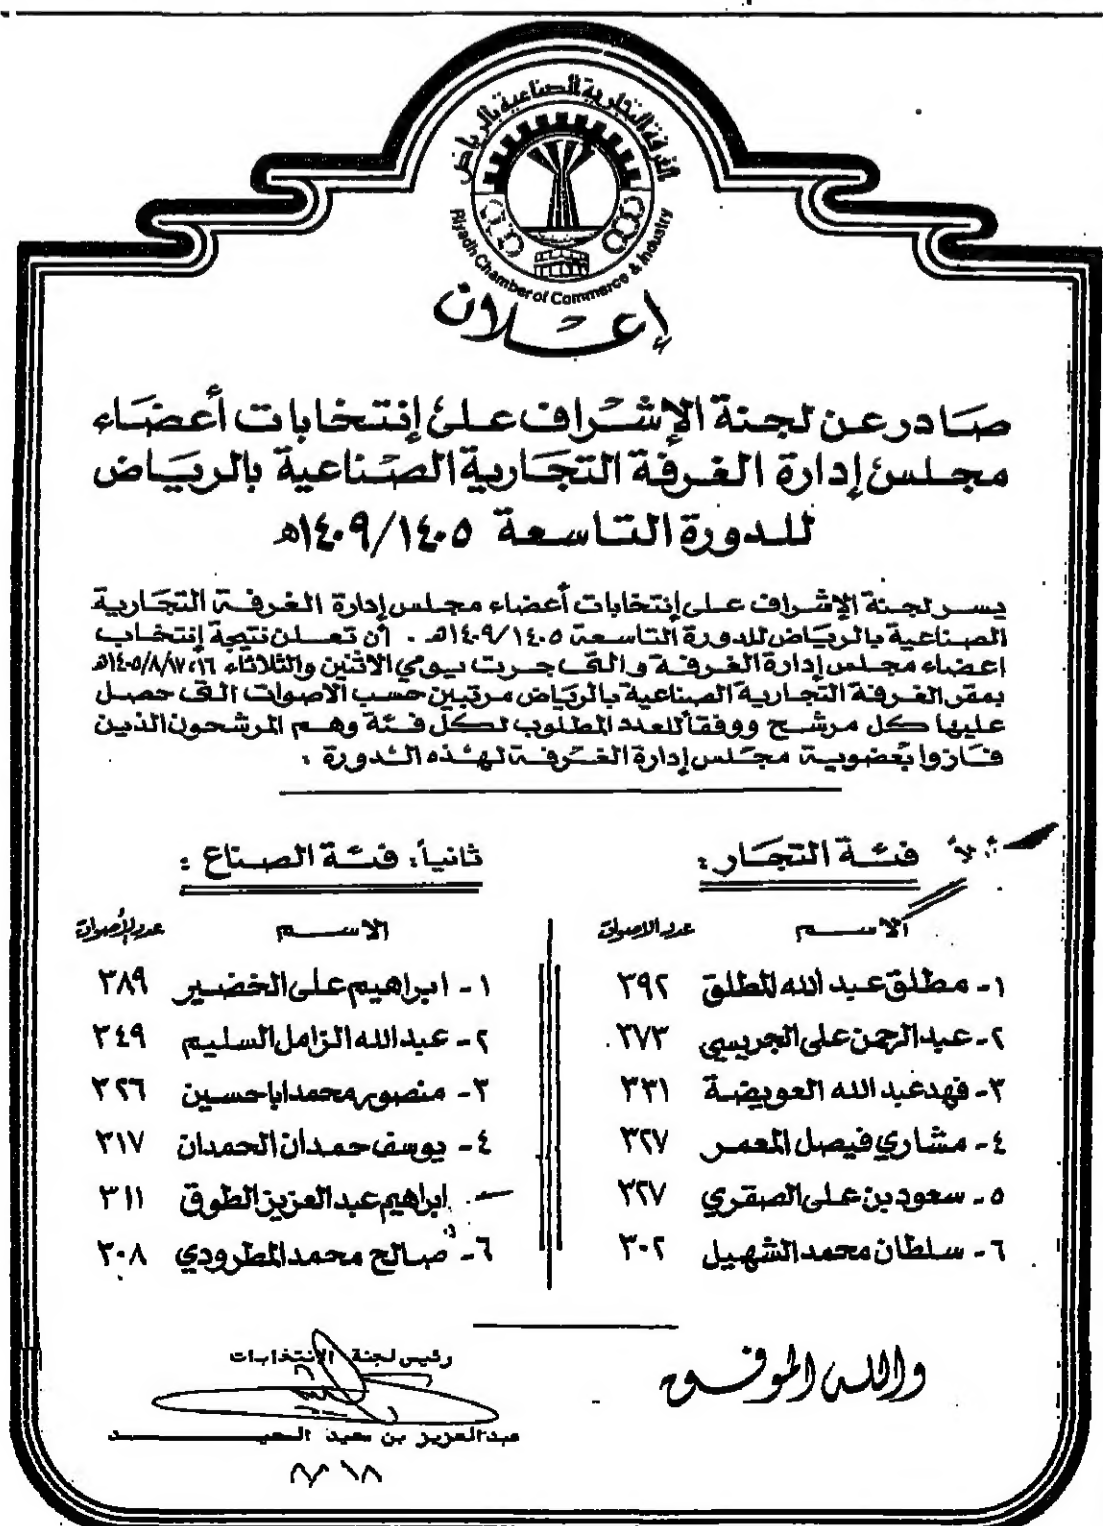 الغرفة التجارية الصناعية بالرياض
Riyadh Chamber of Commerce & Industry
إعلان
صادر عن لجنة الإشراف على إنتخابات أعضاء
مجلس إدارة الغرفة التجارية الصناعية بالرياض
للدورة التاسعة ١٤٠٥/١٤٠٩هـ
يسر لجنة الإشراف على إنتخابات أعضاء مجلس إدارة الغرفة التجارية
الصناعية بالرياض للدورة التاسعة ١٤٠٥/١٤٠٩هـ . أن تعلن نتيجة إنتخاب
اعضاء مجلس إدارة الغرفة والتى جرت يومي الاثنين والثلاثاء ١٦، ١٤٠٥/٨/١٧هـ
بمقر الغرفة التجارية الصناعية بالرياض مرتبين حسب الاصوات التى حصل
عليها كل مرشح ووفقاً للعدد المطلوب لكل فئة وهم المرشحون الذين
فازوا بعضوية مجلس إدارة الغرفة لهذه الدورة :
فئة التجار :
الاسم عدد الاصوات
١- مطلق عبد الله المطلق ٣٩٢
٢- عبد الرحمن على الجريسي ٣٧٣
٣- فهد عبد الله العويضة ٣٣١
٤- مشاري فيصل المعمر ٣٢٧
٥- سعود بن على الصقري ٣٢٧
٦- سلطان محمد الشهيل ٣٠٢
ثانياً: فئة الصناع :
الاسم عدد الأصوات
١- ابراهيم على الخضير ٣٨٩
٢- عبد الله الزامل السليم ٣٤٩
٣- منصور محمد اباحسين ٣٢٦
٤- يوسف حمدان الحمدان ٣١٧
ابراهيم عبد العزيز الطوق ٣١١
٦- صالح محمد المطرودي ٣٠٨
والله الموفق
رئيس لجنة الانتخابات
عبد العزيز بن سعيد